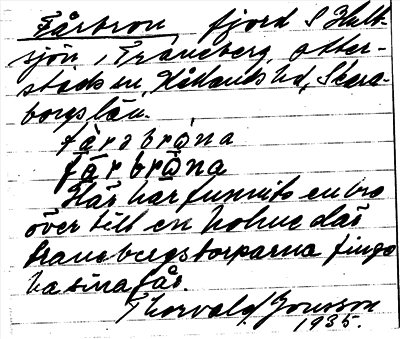 Fårbron, fjord S Hult-
sjön, Traneberg, Otter-
stads sn, Kållands hd, Skara-
borgs län.
fårəbròna
fårbròna
Här har funnits en bro
över till en holme där
tranebergstorparna fingo
ha sina får.
Thorvald Jonsson
1935.